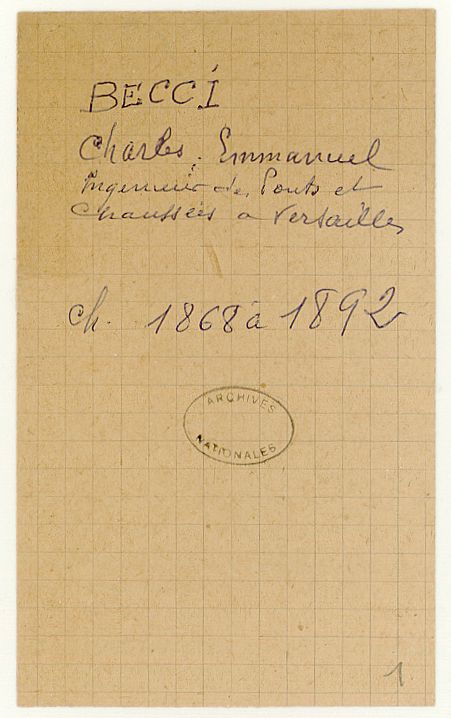 BECCI
Charles, Emmanuel
Ingenieur des Ponts et
Chaussées a Versailles
ch. 1868 à 1892
ARCHIVES
NATIONALES
1